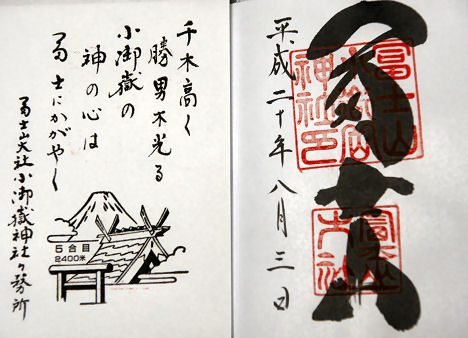 冨士山
冨士山
小御嶽
神社印
平成二十年八月三日
千木高く
勝男木光る
小御嶽の
神の心は
冨士にかがやく
冨士山大社小御嶽神社々務所
5合目
2400米